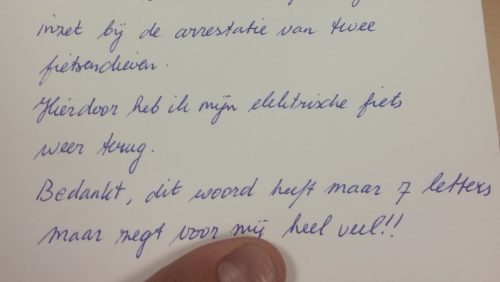 inzet bij de arrestatie van twee
fietsendieven.
Hierdoor heb ik mijn elektrische fiets
weer terug.
Bedankt, dit woord heeft maar 7 letters
maar zegt voor mij heel veel!!